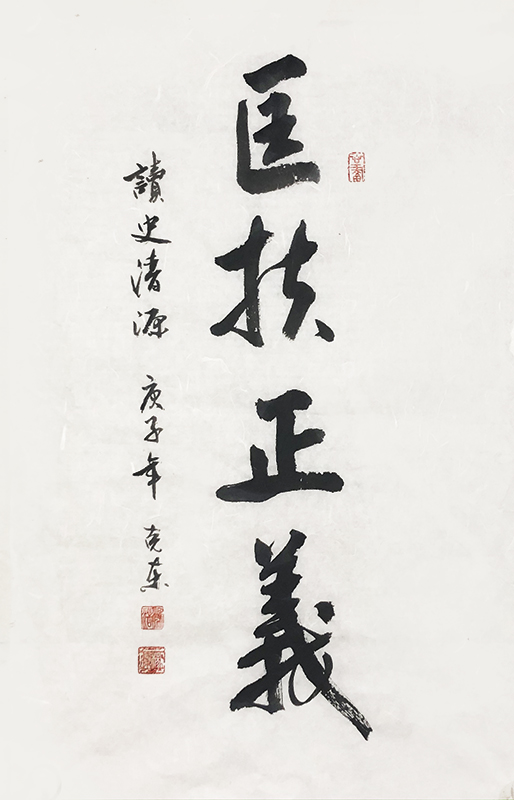 匡扶正義
讀史清源 庚子年 克東